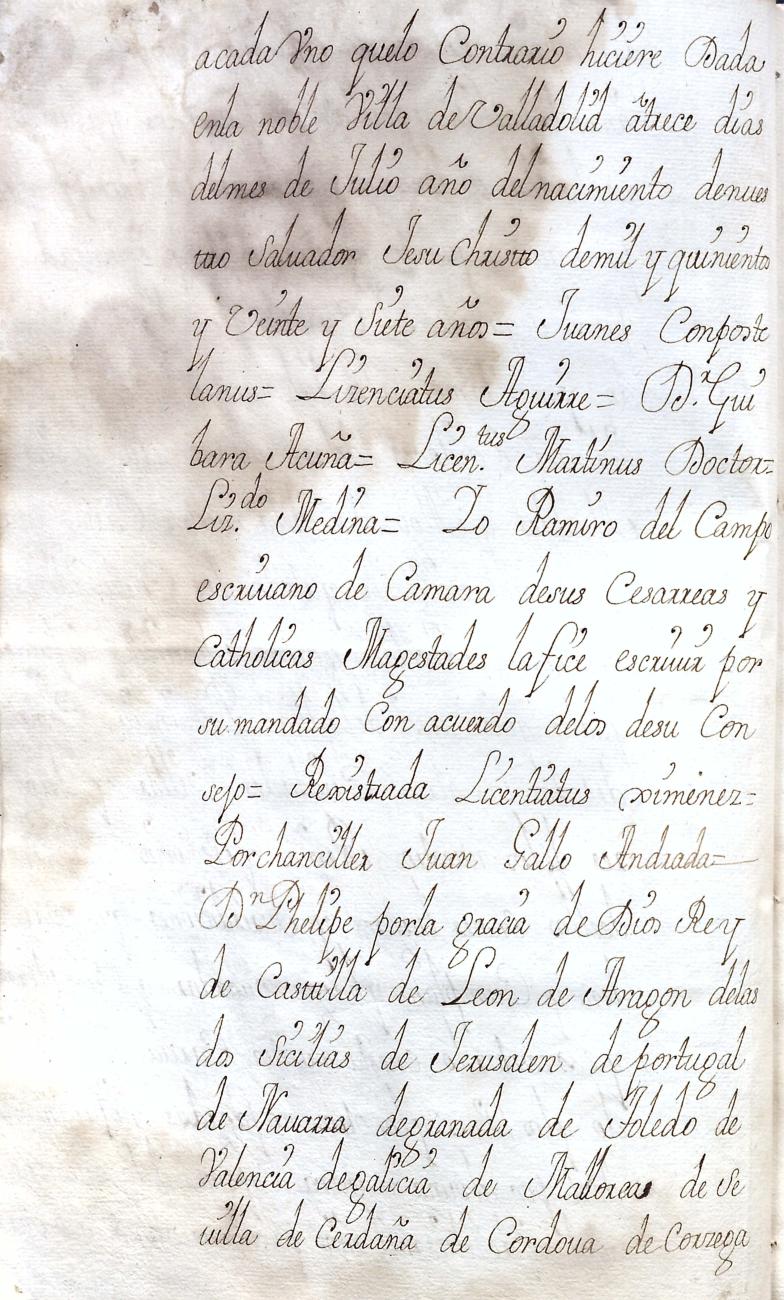 acada Vno quelo Contrario hiciere Dada
enla noble Villa de Valladolid atrece dias
delmes de Julio año delnacimiento denues
ttro Saluador Jesu Christto demil y quinientos
y Veinte y Siete años= Juanes Conposte
lanus= Lizenciatus Aguirre= D.r Gui
bara Acuña= Licen.tus Martinus Doctor=
Liz.do Medina= Yo Ramiro del Campo
escriuano de Camara desus Cesarreas y
Catholicas Magestades lafice escriuir por
su mandado Con acuerdo delos desu Con
sejo= Rexistrada Licentiatus ximenez=
Porchanciller Juan Gallo Andrada=
Dn Phelipe porla gracia de Dios Rey
de Casttilla de Leon de Aragon delas
dos Sicilias de Jerusalen de portugal
de Nauarra degranada de Toledo de
Valencia degalicia de Mallorcas de Se
uilla de Cerdaña de Cordoua de Corzega